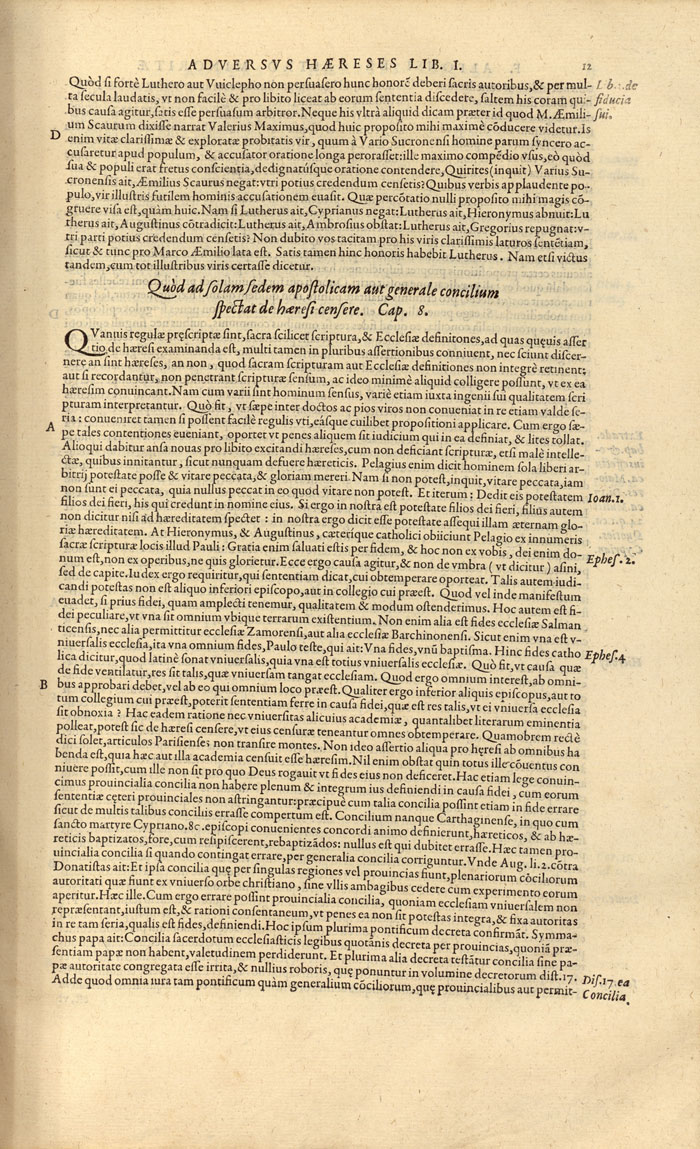 ADVERSVS HÆRESES LIB. I. 12
Quòd si fortè Luthero aut Vuiclepho non persuasero hunc honorẽ deberi sacris autoribus, & per mul-
ta secula laudatis, vt non facilè & pro libito liceat ab eorum sententia discedere, saltem his coram qui-
bus causa agitur, satis esse persuasum arbitror. Neque his vltrà aliquid dicam præter id quod M. Æmili-
um Scaurum dixisse narrat Valerius Maximus, quod huic proposito mihi maximè cõducere videtur. Is
enim vitæ clarissimæ & exploratæ probitatis vir, quum à Vario Sucronensi homine parum syncero ac-
cusaretur apud populum, & accusator oratione longa perorasset: ille maximo compẽdio vsus, eò quòd
sua & populi erat fretus conscientia, dedignatúsque oratione contendere, Quirites (inquit) Varius Su-
cronensis ait, Æmilius Scaurus negat: vtri potius credendum censetis? Quibus verbis applaudente po-
pulo, vir illustris futilem hominis accusationem euasit. Quæ percõtatio nulli proposito mihi magis cõ-
gruere visa est, quàm huic. Nam si Lutherus ait, Cyprianus negat: Lutherus ait, Hieronymus abnuit: Lu
therus ait, Augustinus cõtradicit: Lutherus ait, Ambrosius obstat: Lutherus ait, Gregorius repugnat: v-
tri parti potius credendum censetis? Non dubito vos tacitam pro his viris clarissimis laturos sentẽtiam,
sicut & tunc pro Marco Æmilio lata est. Satis tamen hinc honoris habebit Lutherus. Nam etsi victus
tandem, cum tot illustribus viris certasse dicetur.
L b. : de
fiducia
sui.
D
Quòd ad solam sedem apostolicam aut generale concilium
spectat de hæresi censere. Cap. 8.
QVanuis regulæ pręscriptæ sint, sacra scilicet scriptura, & Ecclesiæ definitones, ad quas quęuis asser
tio de hæresi examinanda est, multi tamen in pluribus assertionibus conniuent, nec sciunt discer-
nere an sint hæreses, an non, quòd sacram scripturam aut Ecclesiæ definitiones non integrè retinent:
aut si recordantur, non penetrant scripturæ sensum, ac ideo minimè aliquid colligere possunt, vt ex ea
hæresim conuincant. Nam cum varii sint hominum sensus, variè etiam iuxta ingenii sui qualitatem scri
pturam interpretantur. Quò fit, vt sæpe inter doctos ac pios viros non conueniat in re etiam valde se-
ria: conueniret tamen si possent facilè regulis vti, easque cuilibet propositioni applicare. Cum ergo sæ-
pe tales contentiones eueniant, oportet vt penes aliquem sit iudicium qui in ea definiat, & lites tollat.
Alioqui dabitur ansa nouas pro libito excitandi hæreses, cum non deficiant scripturæ, etsi malè intelle-
ctæ, quibus innitantur, sicut nunquam defuere hæreticis. Pelagius enim dicit hominem sola liberi ar-
bitrij potestate posse & vitare peccata, & gloriam mereri. Nam si non potest, inquit, vitare peccata, iam
non sunt ei peccata, quia nullus peccat in eo quod vitare non potest. Et iterum: Dedit eis potestatem
filios dei fieri, his qui credunt in nomine eius. Si ergo in nostra est potestate filios dei fieri, filius autem
non dicitur nisi ad hæreditatem spectet: in nostra ergo dicit esse potestate assequi illam æternam glo-
riæ hæreditatem. At Hieronymus, & Augustinus, cæterique catholici obiiciunt Pelagio ex innumeris
sacræ scripturæ locis illud Pauli: Gratia enim saluati estis per fidem, & hoc non ex vobis, dei enim do-
num est, non ex operibus, ne quis glorietur. Ecce ergo causa agitur, & non de vmbra (vt dicitur) asini,
sed de capite. Iudex ergo requiritur, qui sententiam dicat, cui obtemperare oporteat. Talis autem iudi-
candi potestas non est aliquo inferiori episcopo, aut in collegio cui præest. Quod vel inde manifestum
euadet, si prius fidei, quam amplecti tenemur, qualitatem & modum ostenderimus. Hoc autem est fi-
dei peculiare, vt vna sit omnium vbique terrarum existentium. Non enim alia est fides ecclesiæ Salman
ticensis, nec alia permittitur ecclesiæ Zamorensi, aut alia ecclesiæ Barchinonensi. Sicut enim vna est v-
niuersalis ecclesia, ita vna omnium fides, Paulo teste, qui ait: Vna fides, vnũ baptisma. Hinc fides catho
lica dicitur, quod latinè sonat vniuersalis, quia vna est totius vniuersalis ecclesiæ. Quò fit, vt causa quæ
de fide ventilatur, res sit talis, quæ vniuersam tangat ecclesiam. Quod ergo omnium interest, ab omni-
bus approbari debet, vel ab eo qui omnium loco præest. Qualiter ergo inferior aliquis episcopus, aut to
tum collegium cui præest, poterit sententiam ferre in causa fidei, quæ est res talis, vt ei vniuersa ecclesia
sit obnoxia? Hac eadem ratione nec vniuersitas alicuius academiæ, quantalibet literarum eminentia
polleat, potest sic de hæresi censere, vt eius censuræ teneantur omnes obtemperare. Quamobrem rectè
dici solet, articulos Parisiẽses non transire montes. Non ideo assertio aliqua pro hęresi ab omnibus ha
benda est, quia hæc aut illa academia censuit esse hæresim. Nil enim obstat quin totus ille cõuentus con
niuere possit, cum ille non sit pro quo Deus rogauit vt fides eius non deficeret. Hac etiam lege conuin-
cimus prouincialia concilia non habere plenum & integrum ius definiendi in causa fidei, cum eorum
sententiæ cęteri prouinciales non astringantur: præcipuè cum talia concilia possint etiam in fide errare
sicut de multis talibus conciliis errasse compertum est. Concilium nanque Carthaginense, in quo cum
sancto martyre Cypriano, 8c. episcopi conuenientes concordi animo definierunt, hæreticos, & ab hæ-
reticis baptizatos, fore, cum resipiscerent, rebaptizãdos: nullus est qui dubitet errasse. Hæc tamen pro-
uincialia concilia si quando contingat errare, per generalia concilia corriguntur. Vnde Aug. li. 2. cõtra
Donatistas ait: Et ipsa concilia quę per singulas regiones vel prouincias fiunt, plenariorum cõciliorum
autoritati quæ fiunt ex vniuerso orbe christiano, sine vllis ambagibus cedere cum experimento eorum
aperitur. Hæc ille. Cum ergo errare possint prouincialia concilia, quoniam ecclesiam vniuersalem non
repræsentant, iustum est, & rationi consentaneum, vt penes ea non sit potestas integra, & fixa autoritas
in re tam seria, qualis est fides, definiendi. Hoc ipsum plurima pontificum decreta confirmãt. Symma-
chus papa ait: Concilia sacerdotum ecclesiasticis legibus quotãnis decreta per prouincias, quoniã præ-
sentiam papæ non habent, valetudinem perdiderunt. Et plurima alia decreta testãtur concilia sine pa-
pæ autoritate congregata esse irrita, & nullius roboris, quę ponuntur in volumine decretorum dist. 17.
Adde quod omnia iura tam pontificum quàm generalium cõciliorum, quę prouincialibus aut permit-
A
B
Ioan. 1.
Ephes. 2.
Ephes. 4
Dis. 17 ea
Concilia.